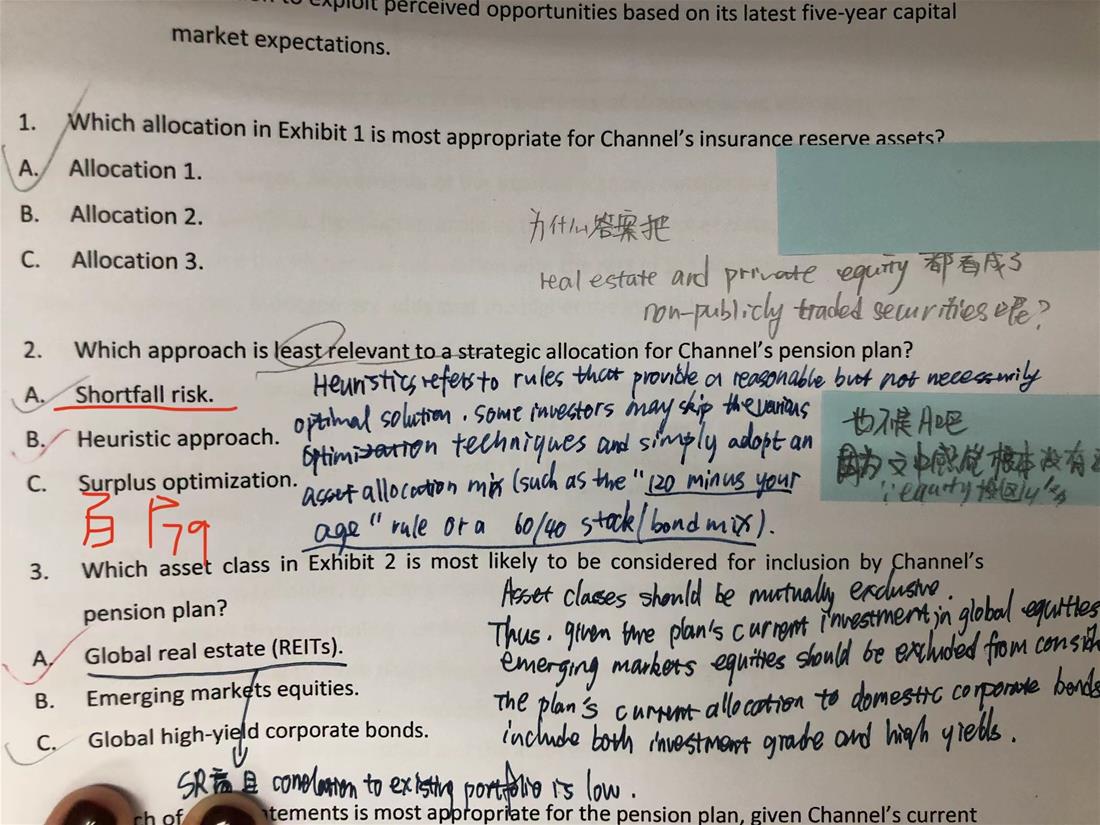 exploit perceived opportunities based on its latest five-year capital
market expectations.
1. Which allocation in Exhibit 1 is most appropriate for Channel's insurance reserve assets?
A. Allocation 1.
B. Allocation 2.
C. Allocation 3.
为什么答案把
real estate and private equity 都看成了
non-publicly traded securities 呢?
2. Which approach is least relevant to a strategic allocation for Channel's pension plan?
A. Shortfall risk.
B. Heuristic approach.
C. Surplus optimization.
Heuristics refers to rules that provide a reasonable but not necessarily
optimal solution. Some investors may skip the various
optimization techniques and simply adopt an
asset allocation mix (such as the "120 minus your
age" rule or a 60/40 stock/bond mix).
也候A吧
因为文中 根本没有
equity
P79
3. Which asset class in Exhibit 2 is most likely to be considered for inclusion by Channel's
pension plan?
A. Global real estate (REITs).
B. Emerging markets equities.
C. Global high-yield corporate bonds.
Asset classes should be mutually exclusive.
Thus. given the plan's current investment in global equities
emerging markets equities should be excluded from
The plan's current allocation to domestic corporate bonds
include both investment grade and high yields.
SR高且 correlation to existing portfolio is low.
tements is most appropriate for the pension plan, given Channel's current